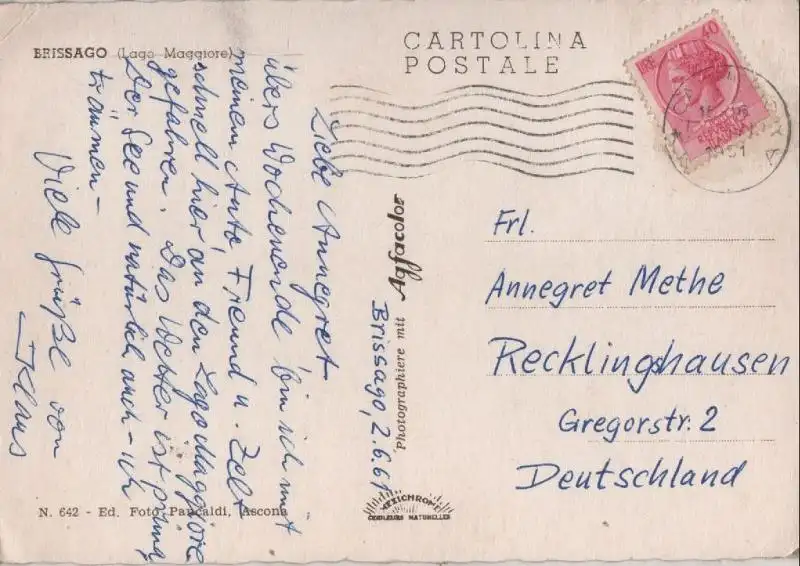 BRISSAGO (Lago Maggiore)
CARTOLINA
POSTALE
LIRE 40
Brissago, 2.6.61
Liebe Annegret
übers Wochenende bin ich mit
meinem Auto, Freund u. Zelt
schnell hier an den Lago Maggiore
gefahren. Das Wetter ist prima,
Der See und natürlich auch - ich
träumen -
Viele Grüße von
Klaus
Photographiere mit Agfacolor
Frl.
Annegret Methe
Recklinghausen
Gregorstr. 2
Deutschland
MEXICHROME
COULEURS NATURELLES
N. 642 - Ed. Foto Pancaldi, Ascona